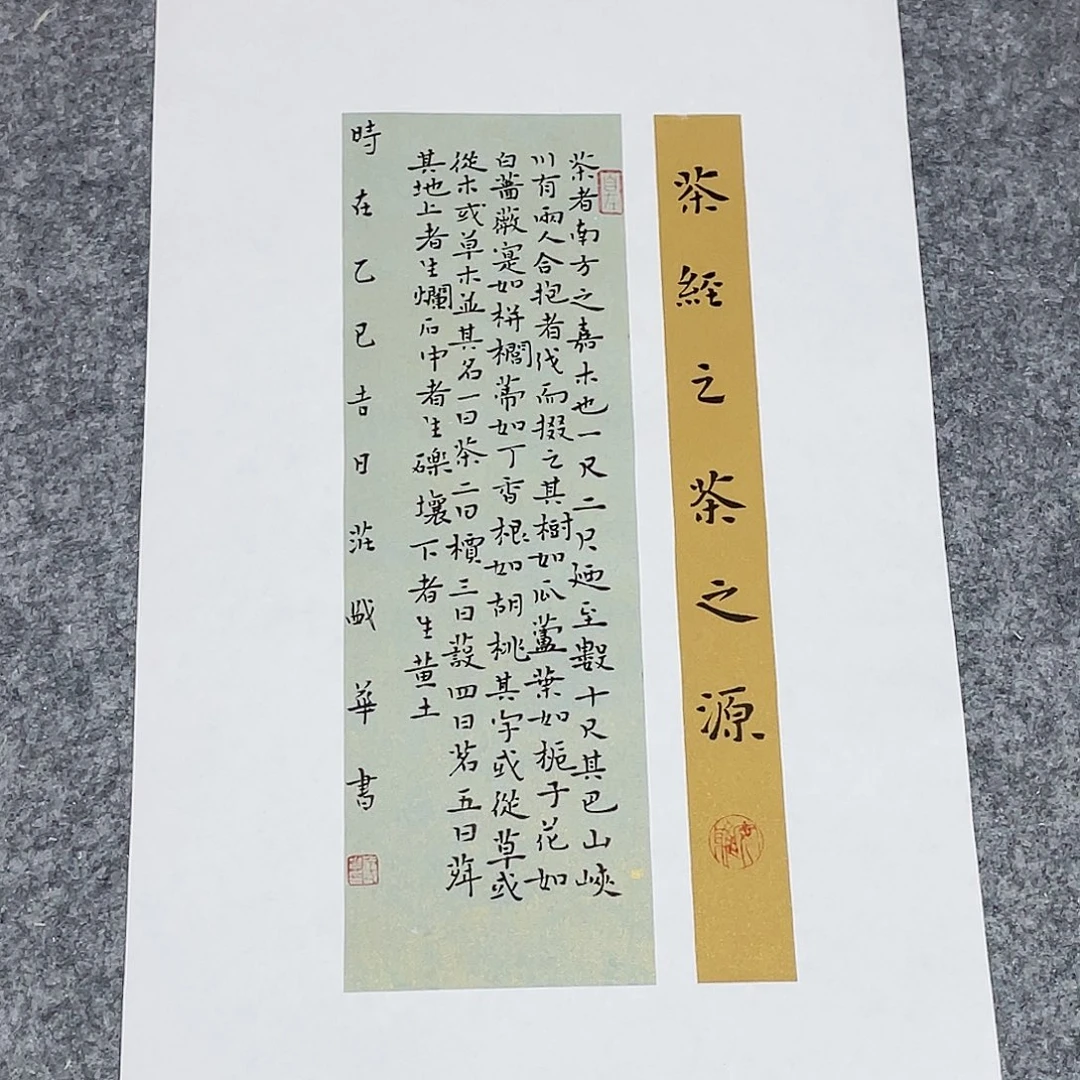 茶經之茶之源
茶者南方之嘉木也一尺二尺廼至數十尺其巴山峽
川有兩人合抱者伐而掇之其樹如瓜蘆葉如梔子花如
白薔薇寔如栟櫚蒂如丁香根如胡桃其字或從草或
從木或草木並其名一曰茶二曰檟三曰蔎四曰茗五曰荈
其地上者生爛石中者生礫壤下者生黄土
時在乙巳吉日莊華書